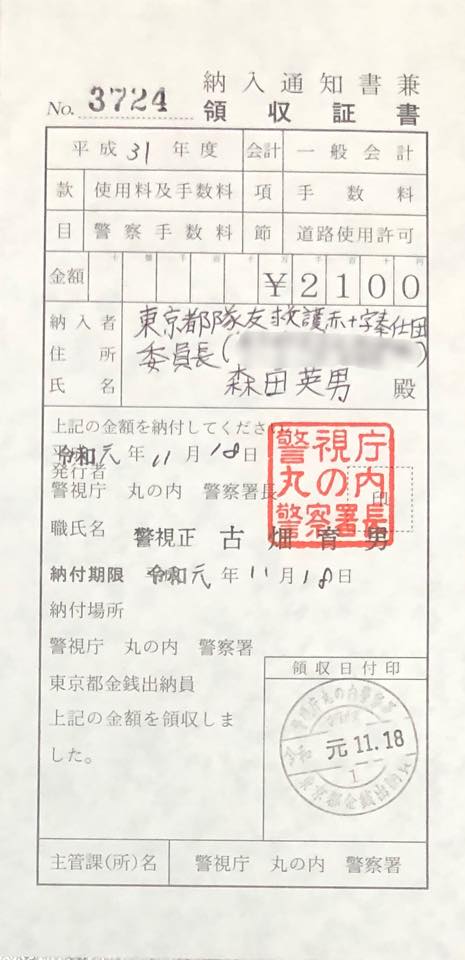 納入通知書兼
No. 3724 領収証書
平成31年度 会計 一般会計
款 使用料及手数料 項 手数料
目 警察手数料 節 道路使用許可
金額 ¥2100
納入者 東京都隊友救護赤十字奉仕団
住所 委員長( )
氏名 森田英男 殿
上記の金額を納付してください
令和元年11月18日
発行者
警視庁 丸の内 警察署長
印
警視庁
丸の内
警察署長
職氏名 警視正 古畑育男
納付期限 令和元年11月18日
納付場所
警視庁 丸の内 警察署
東京都金銭出納員
上記の金額を領収しま
した。
領収日付印
警視庁丸の内警察署
元11.18
1
東京都金銭出納員
主管課(所)名 警視庁 丸の内 警察署